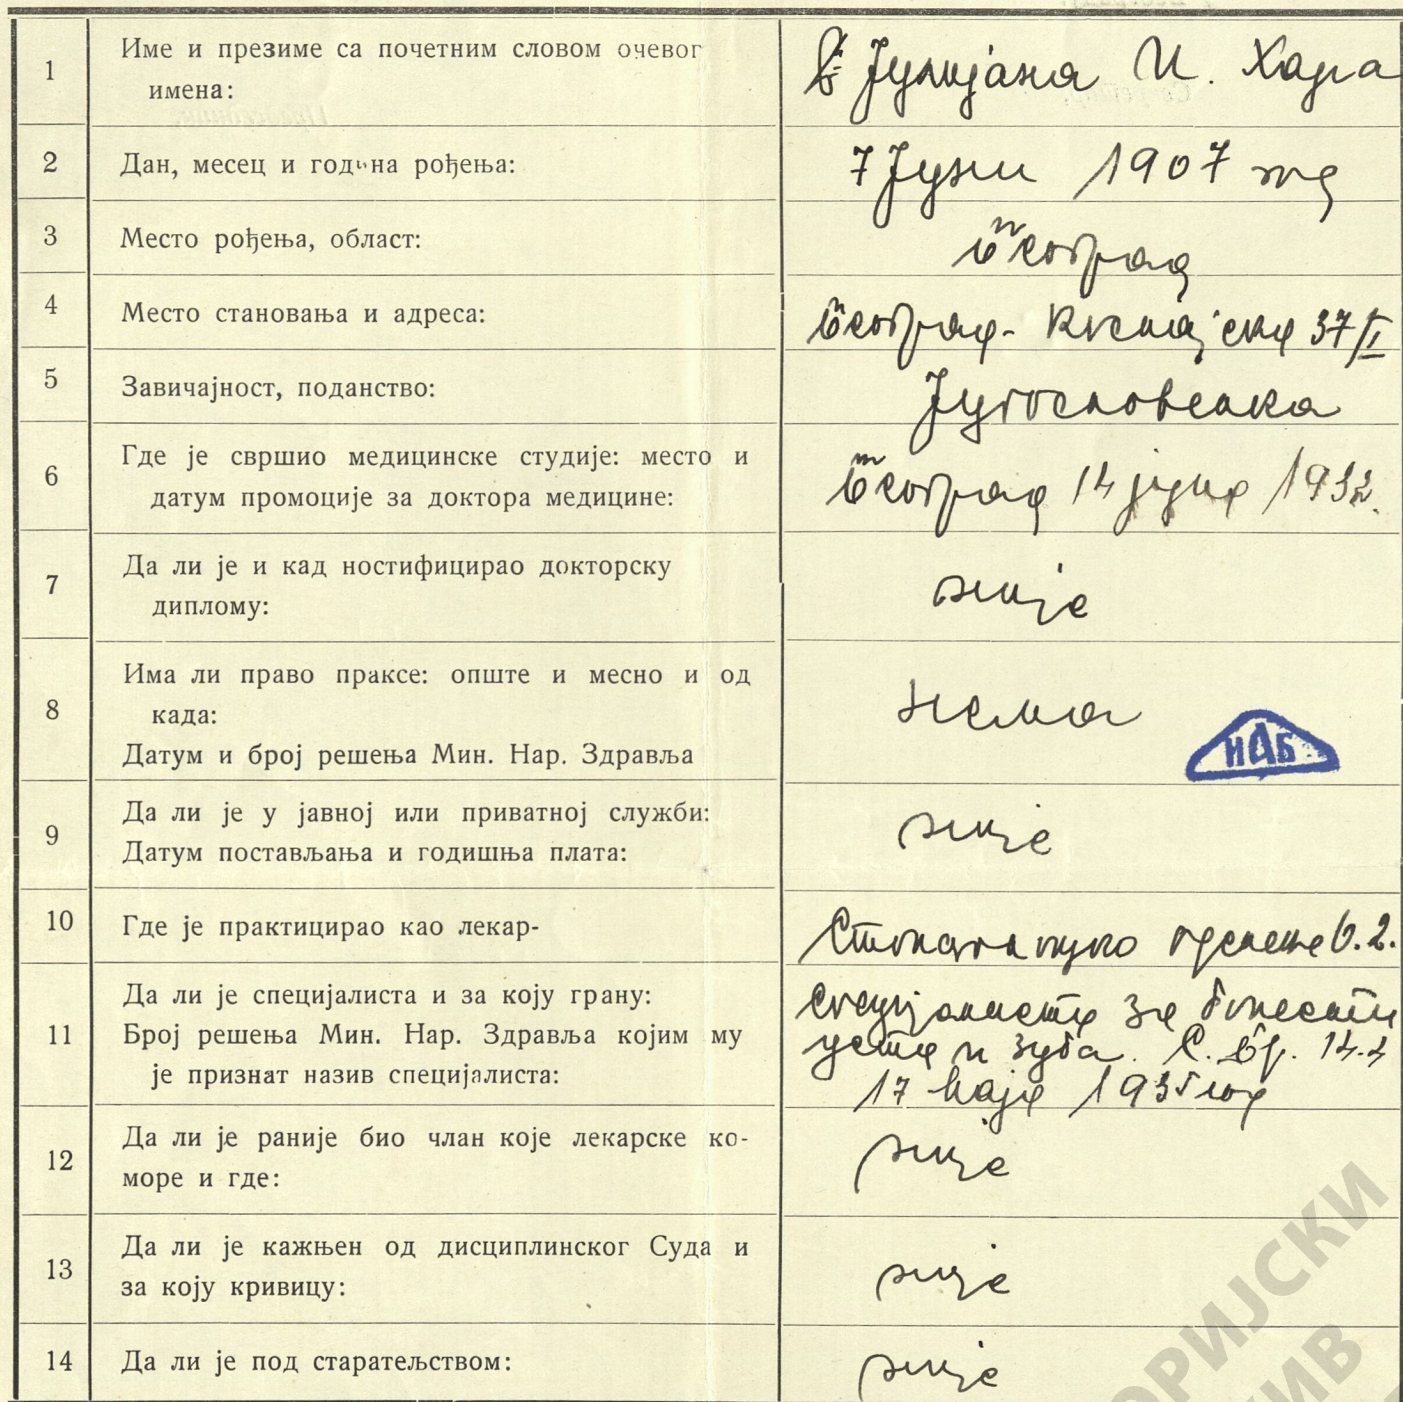 1
Име и презиме са почетним словом очевог
имена:
Јулијана И. Хара
2
Дан, месец и година рођења:
7 Јуни 1907 год
3
Место рођења, област:
Београд
4
Место становања и адреса:
Београд - Космајска 37/I
5
Завичајност, поданство:
Југословенка
6
Где је свршио медицинске студије: место и
датум промоције за доктора медицине:
Београд 14 јуна 1932.
7
Да ли је и кад ностифицирао докторску
диплому:
није
8
Има ли право праксе: опште и месно и од
када:
Датум и број решења Мин. Нар. Здравља
нема
ИАБ
9
Да ли је у јавној или приватној служби:
Датум постављања и годишња плата:
није
10
Где је практицирао као лекар-
11
Да ли је специјалиста и за коју грану:
Број решења Мин. Нар. Здравља којим му
је признат назив специјалиста:
специјалиста за болести
уста и зуба. С. бр.
17 маја 1935 год
12
Да ли је раније био члан које лекарске ко-
море и где:
није
13
Да ли је кажњен од дисциплинског Суда и
за коју кривицу:
није
14
Да ли је под старатељством:
није
ОРИЈСКИ
ХИВ